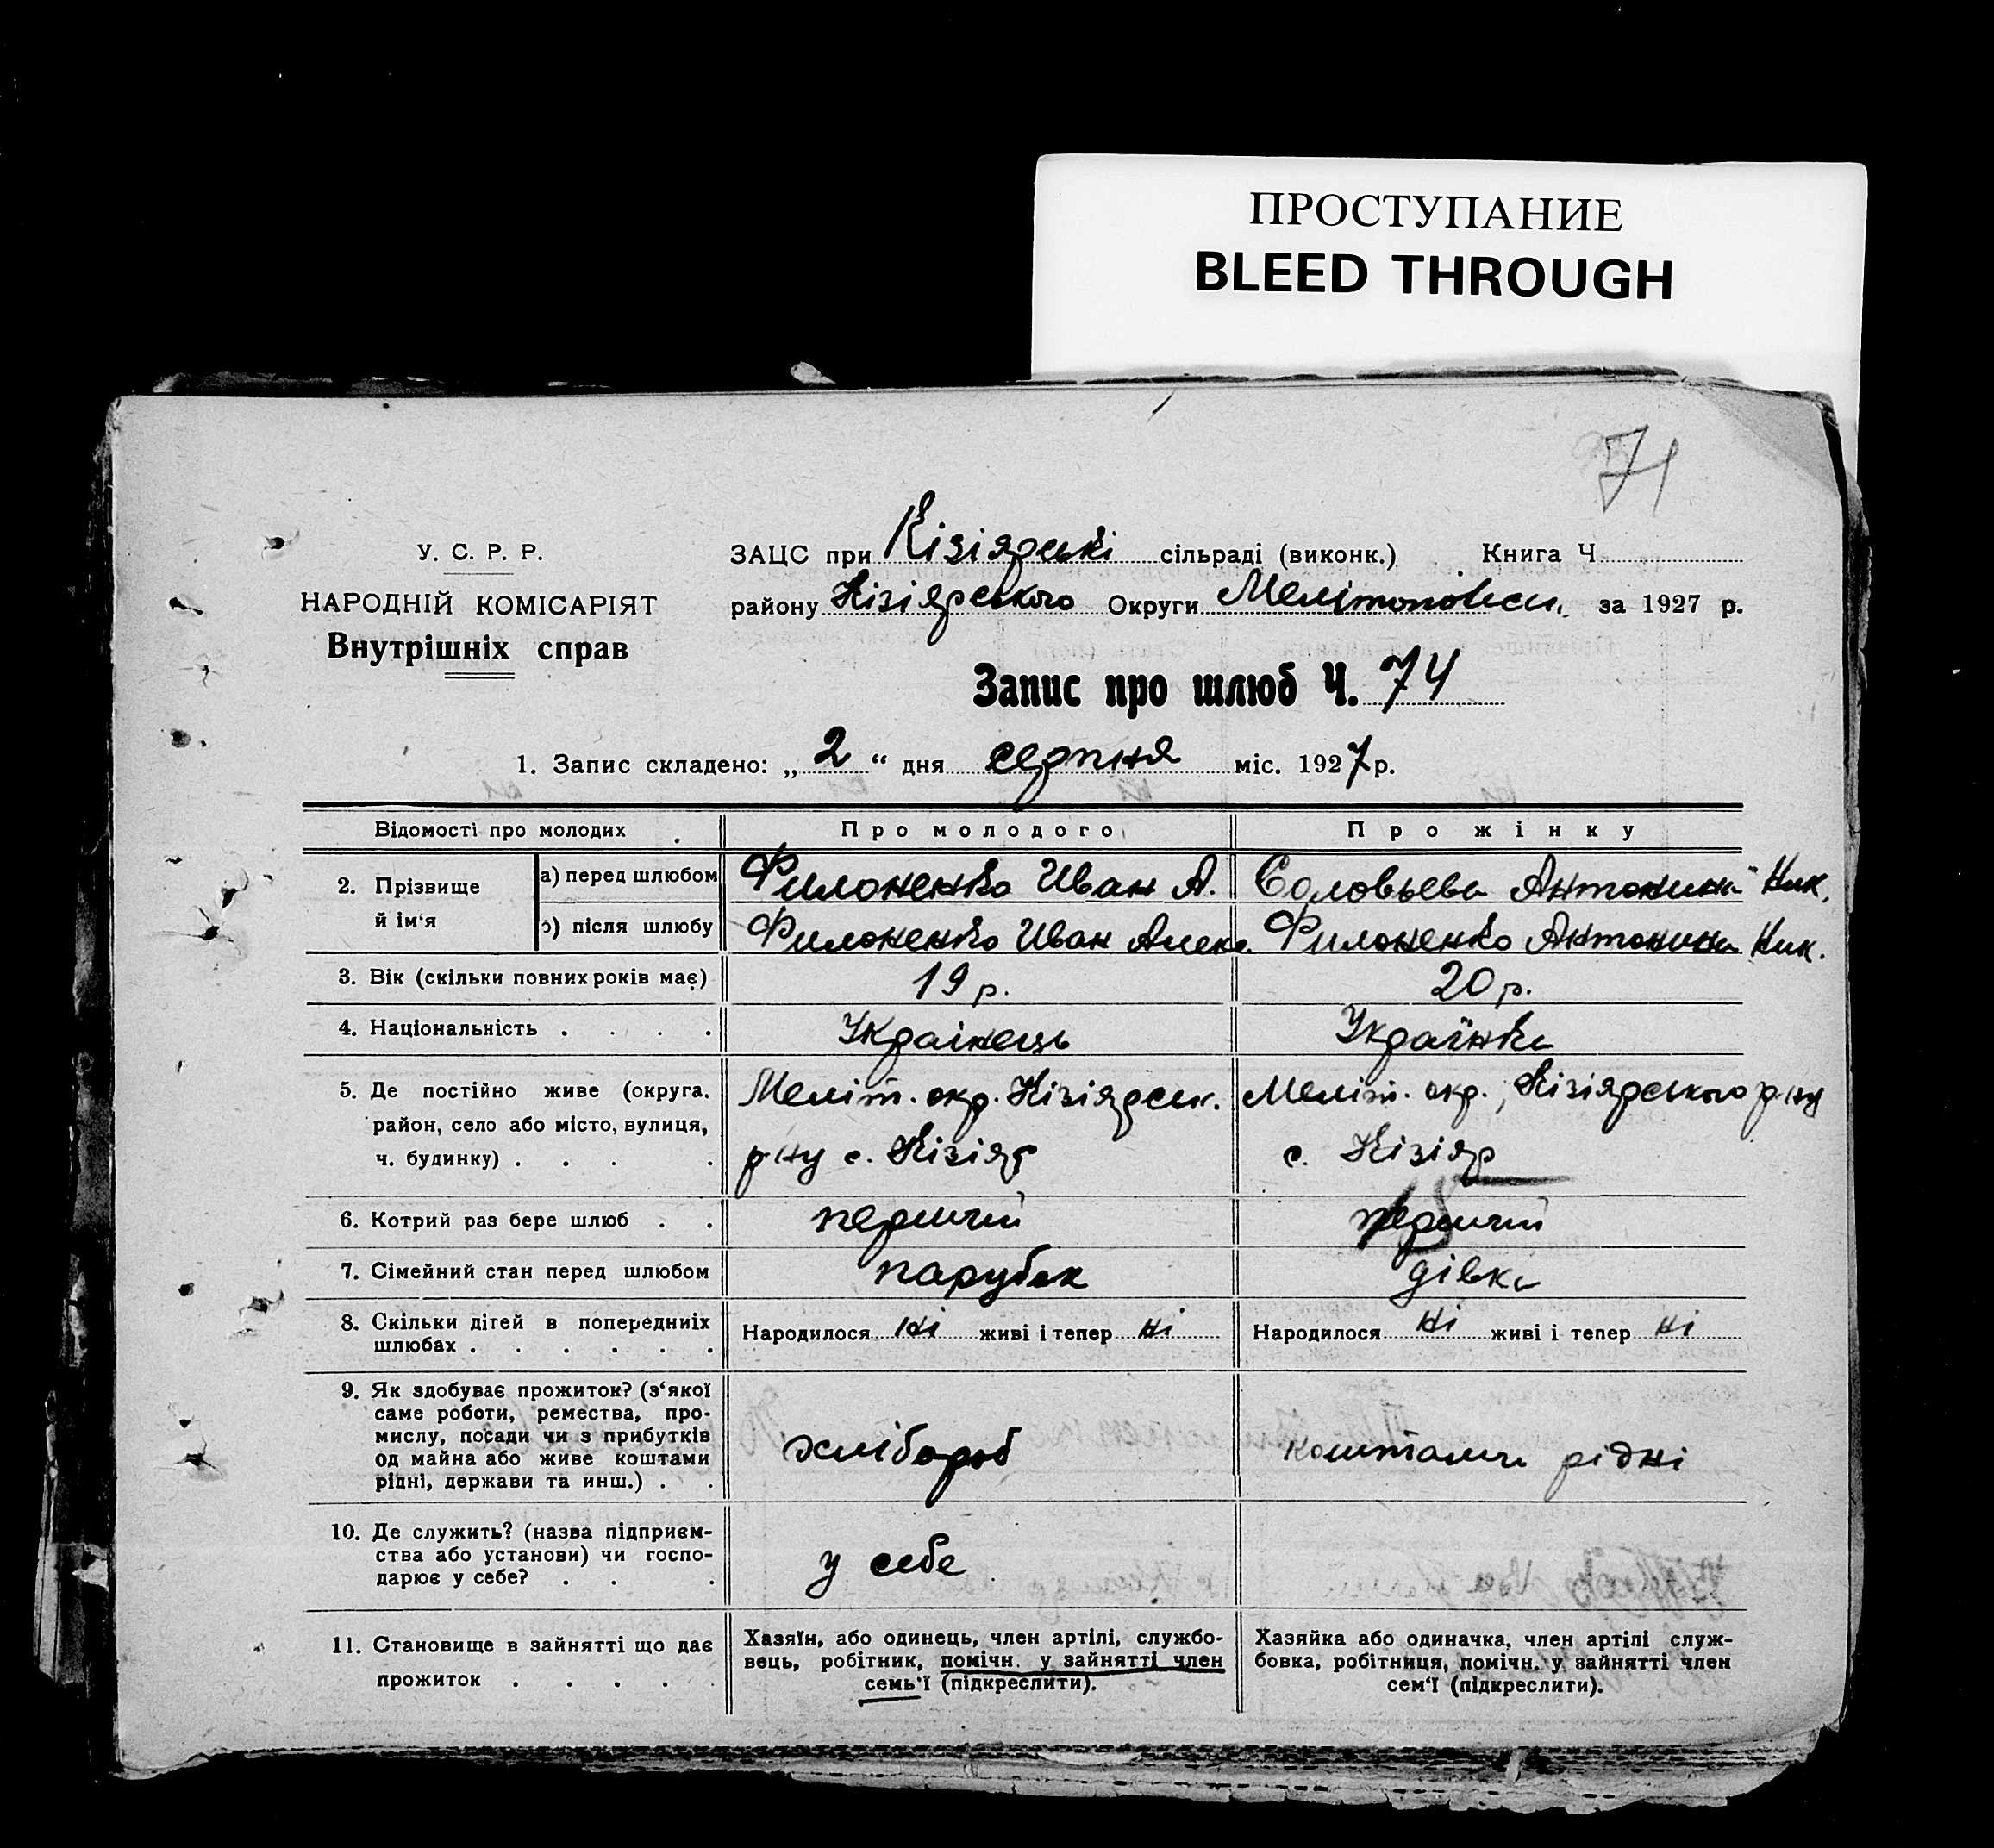 ПРОСТУПАНИЕ
BLEED THROUGH
71
У. С. Р. Р.
НАРОДНІЙ КОМІСАРІЯТ
Внутрішніх справ
ЗАЦС при Кізіярські сільраді (виконк.) Книга Ч
району Кізіярського Округи Мелітопольськ. за 1927 р.
Запис про шлюб Ч. 74
1. Запис складено: „ 2 “ дня серпня міс. 1927 р.
Відомості про молодих Про молодого Про жінку
2. Прізвище й ім‘я
а) перед шлюбом Филоненко Иван А. Соловьева Антонина Ник.
б) після шлюбу Филоненко Иван Алекс. Филоненко Антонина Ник.
3. Вік (скільки повних років має) 19 р. 20 р.
4. Національність . . . . Украінець Украінка
5. Де постійно живе (округа, район, село або місто, вулиця, ч. будинку) . . . .
Меліт. окр. Кізіярськ.
р-ну с. Кізіяр
Меліт. окр., Кізіярського р-ну
с. Кізіяр
6. Котрий раз бере шлюб . . перший перший
7. Сімейний стан перед шлюбом парубок дівка
8. Скільки дітей в попередниіх
шлюбах . . . . . .
Народилося ні живі і тепер ні Народилося ні живі і тепер ні
9. Як здобуває прожиток? (з‘якої
саме роботи, ремества, про-
мислу, посади чи з прибутків
од майна або живе коштами
рідні, держави та инш.) . .
хлібороб коштами рідні
10. Де служить? (назва підприєм-
ства або установи) чи госпо-
дарює у себе? . . .
у себе
11. Становище в зайнятті що дає
прожиток . . . . .
Хазяїн, або одинець, член артілі, службо-
вець, робітник, помічн. у зайнятті член
семь‘ї (підкреслити).
Хазяйка або одиначка, член артілі служ-
бовка, робітниця, помічн. у зайнятті член
сем‘ї (підкреслити).